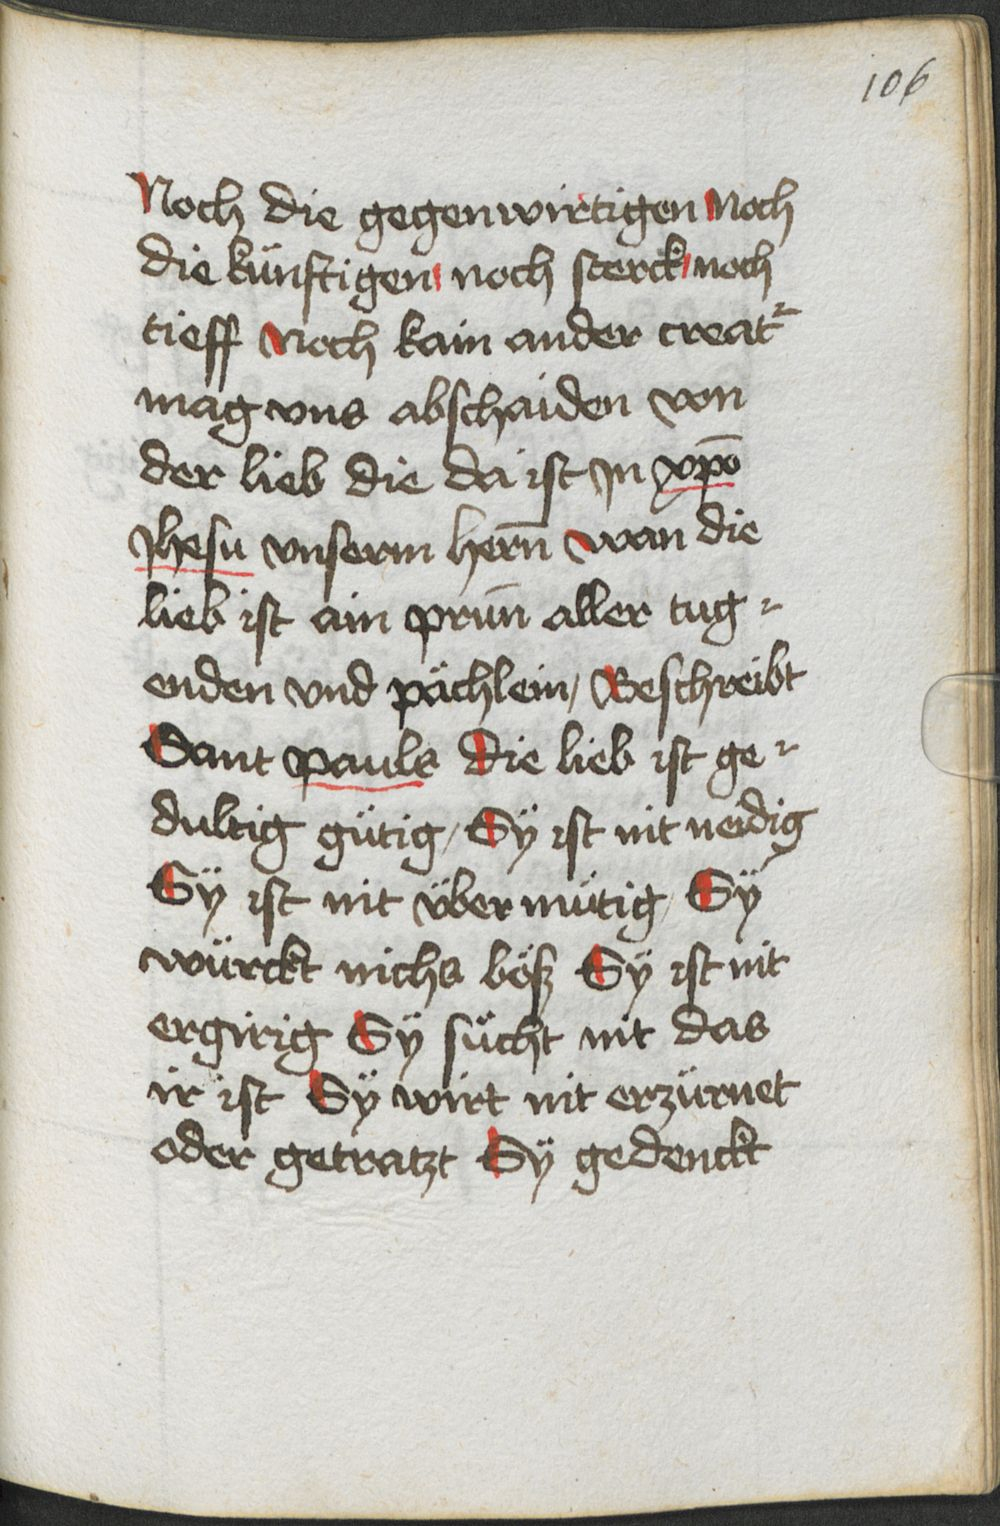 106
Noch die gegenwirtigen Noch
die künftigen noch sterck noch
tieff Noch kain ander creatᷣ
mag vns abschaiden von
der lieb die da ist Jn xp̄o
Jhesu vnserm hern̄ wan die
lieb ist ain prun̄ aller tug⸗
enden vnd pächlein / Beschreibt
Sant pauls Die lieb ist ge⸗
dultig gütig / Sÿ ist nit neidig
Sÿ ist nit übermütig / Sÿ
würckt nichs böß Sÿ ist nit
ergirig Sÿ sücht nit das
ir ist Sÿ wirt nit erzürnet
oder getratzt Sÿ gedenckt